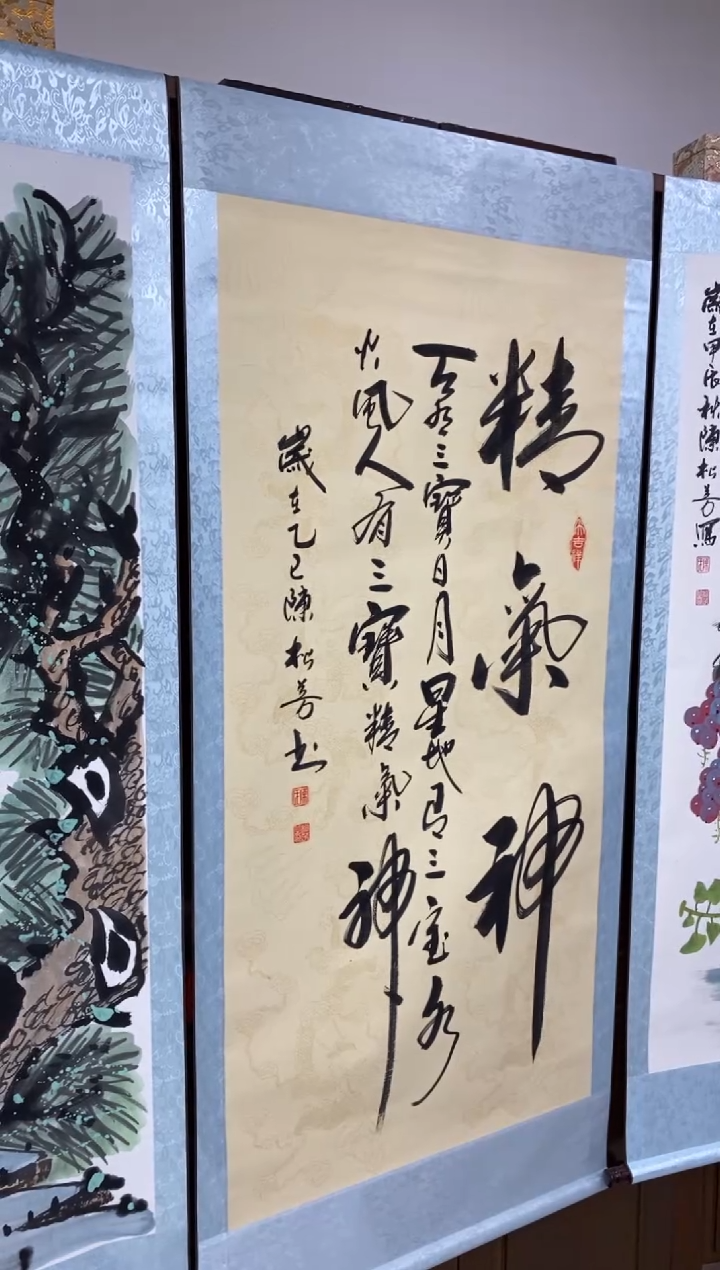 歲在甲辰秋陳松芳寫
精氣神
大吉祥
天有三寶日月星地有三宝水
火風人有三寶精氣神
歲在乙巳陳松芳书